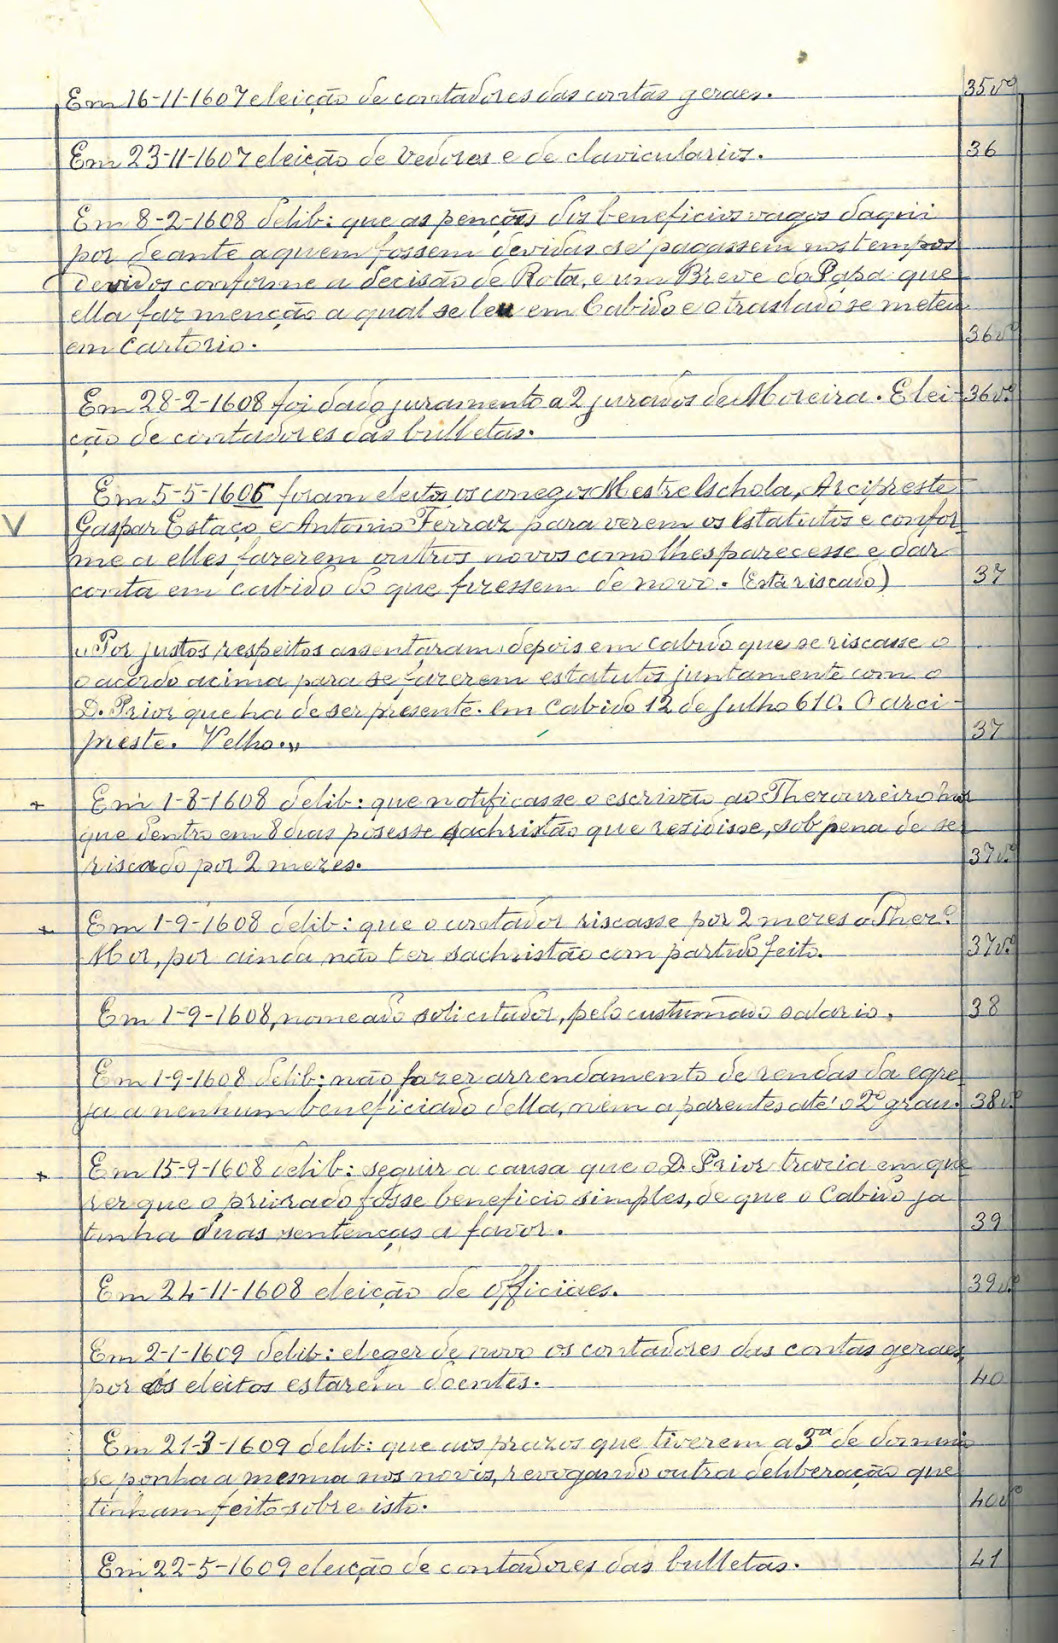 Em 16-11-1607 eleição de contadores das contas geraes. 35 vº
Em 23-11-1607 eleição de vedores e de clavicularios. 36
Em 8-2-1608 delib: que as penções dos beneficios vagos daqui
por deante a quem fossem devidas se pagassem nos tempos
devidos conforme a decisão de Rota, e um Breve do Papa que
ella faz menção a qual se leu em Cabido e o traslado se meteu
em Cartorio. 36 vº
Em 28-2-1608 foi dado juramento a 2 jurados de Moreira. Elei- 36 vº
ção de contadores das bulletas.
Em 5-5-1606 foram eleitos os conegos Mestre Eschola, Arcipreste
V Gaspar Estaço e Antonio Ferraz para verem os Estatutos e confor-
me a elles fazerem outros novos como lhes parecesse e dar
conta em cabido do que fizessem de novo. (Está riscado) 37
"Por justos respeitos assentaram depois em cabido que se riscasse o
o acordo acima para se fazerem estatutos juntamente com o
D. Prior que ha de ser presente. Em Cabido 12 de Julho 610. O arci-
preste. Velho." 37
+ Em 1-8-1608 delib: que notificasse o escrivão ao Thezoureiro Mor
que dentro em 8 dias posesse sachristão que residisse, sob pena de se
riscado por 2 mezes. 37 vº
+ Em 1-9-1608 delib: que o contador riscasse por 2 mezes o Therº
Mor, por ainda não ter sachristão com partido feito. 37 vº
Em 1-9-1608, nomeado solicitador, pelo custumado salario. 38
Em 1-9-1608 delib: não fazer arrendamento de rendas da egre-
ja a nenhum beneficiado della, nem a parentes até o 2º grau. 38 vº
+ Em 15-9-1608 delib: seguir a causa que o D. Prior trazia em que-
rer que o priorado fosse beneficio simples, de que o Cabido ja
tinha duas sentenças a favor. 39
Em 24-11-1608 eleição de officiaes. 39 vº
Em 2-1-1609 delib: eleger de novo os contadores das contas geraes,
por os eleitos estarem doentes. 40
Em 21-3-1609 delib: que aos prazos que tiverem a 3ª de dominio
se ponha a mesma nos novos, revogando outra deliberação que
tinham feito sobre isto. 40 vº
Em 22-5-1609 eleição de contadores das bulletas. 41